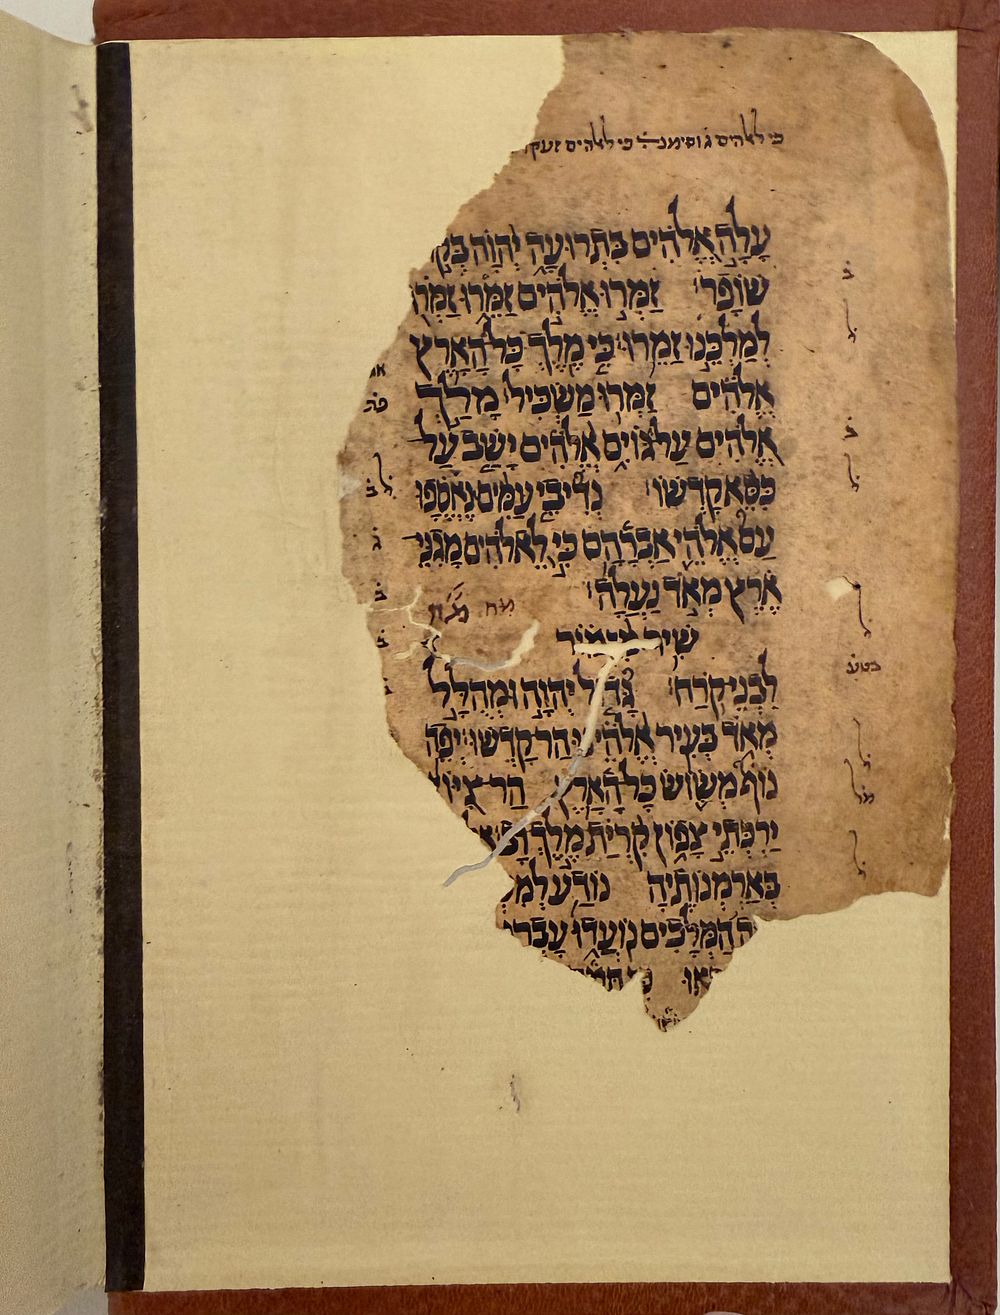 כי לאלהים ג וסימנה כי לאלהים
עָלָה אֱלֹהִים בִּתְרוּעָה יְהוָה
שׁוֹפָר׃ זַמְּרוּ אֱלֹהִים זַמֵּרוּ זַמְּרוּ
לְמַלְכֵּנוּ זַמֵּרוּ׃ כִּי מֶלֶךְ כָּל הָאָרֶץ
אֱלֹהִים זַמְּרוּ מַשְׂכִּיל׃ מָלַךְ
אֱלֹהִים עַל גּוֹיִם אֱלֹהִים יָשַׁב עַל
כִּסֵּא קָדְשׁוֹ׃ נְדִיבֵי עַמִּים נֶאֱסָפוּ
עַם אֱלֹהֵי אַבְרָהָם כִּי לֵאלֹהִים מָגִנֵּי
אֶרֶץ מְאֹד נַעֲלָה׃
מח
שִׁיר מִזְמוֹר
לִבְנֵי קֹרַח׃ גָּדוֹל יְהוָה וּמְהֻלָּל
מְאֹד בְּעִיר אֱלֹהֵינוּ הַר קָדְשׁוֹ׃ יְפֵה
נוֹף מְשׂוֹשׂ כָּל הָאָרֶץ הַר צִיּוֹן
יַרְכְּתֵי צָפוֹן קִרְיַת מֶלֶךְ רָב׃
בְּאַרְמְנוֹתֶיהָ נוֹדַע
הַמְּלָכִים נוֹעֲדוּ עָבְרוּ
ב
ל
ב
ל
ל
בטע
ל
מל
ל
פת
ל
ב
ג
ב
ב